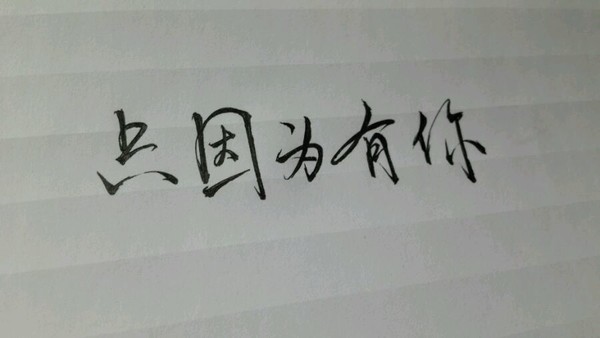 点因为有你